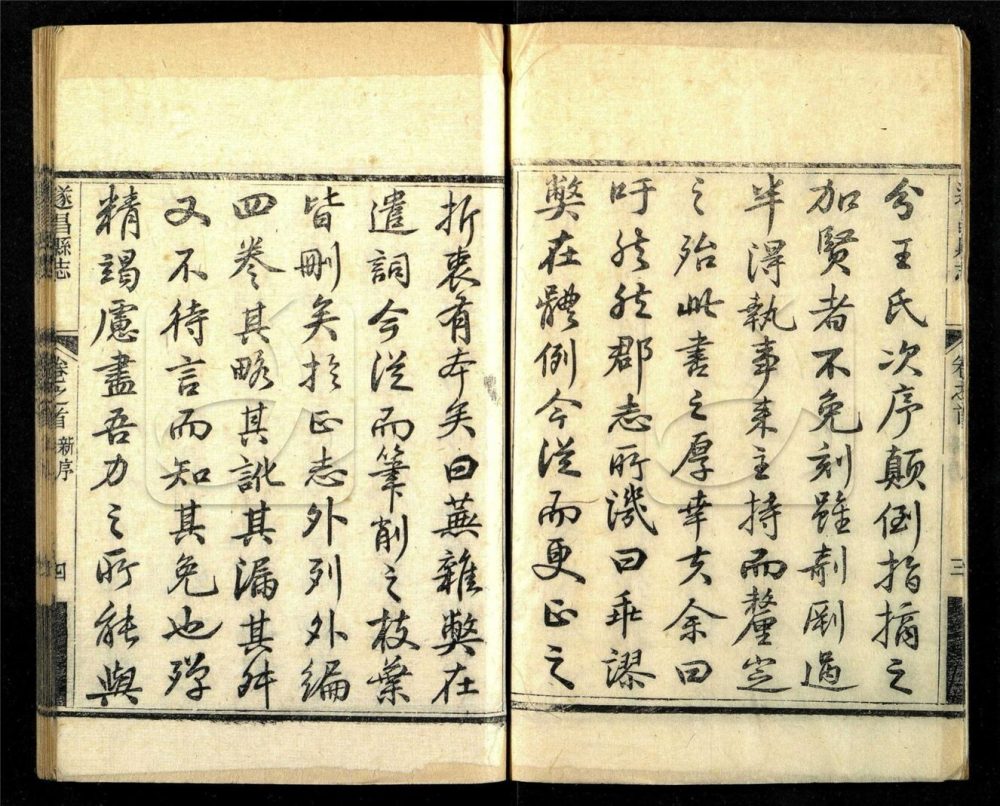 兮王氏次序顛倒指摘之
加賢者不免刻雖剞劂過
半得執事来主持而釐定
之殆此書之厚幸夫余曰
吁然然郡志所譏曰乖謬
弊在體例今從而更正之
折衷有本矣曰蕪雜弊在
遣詞今從而筆削之枝葉
皆刪矣於正志外列外編
四卷其略其訛其漏其舛
又不待言而知其免也殫
精竭慮盡吾力之所能與
遂昌縣志 卷之首 新序 四